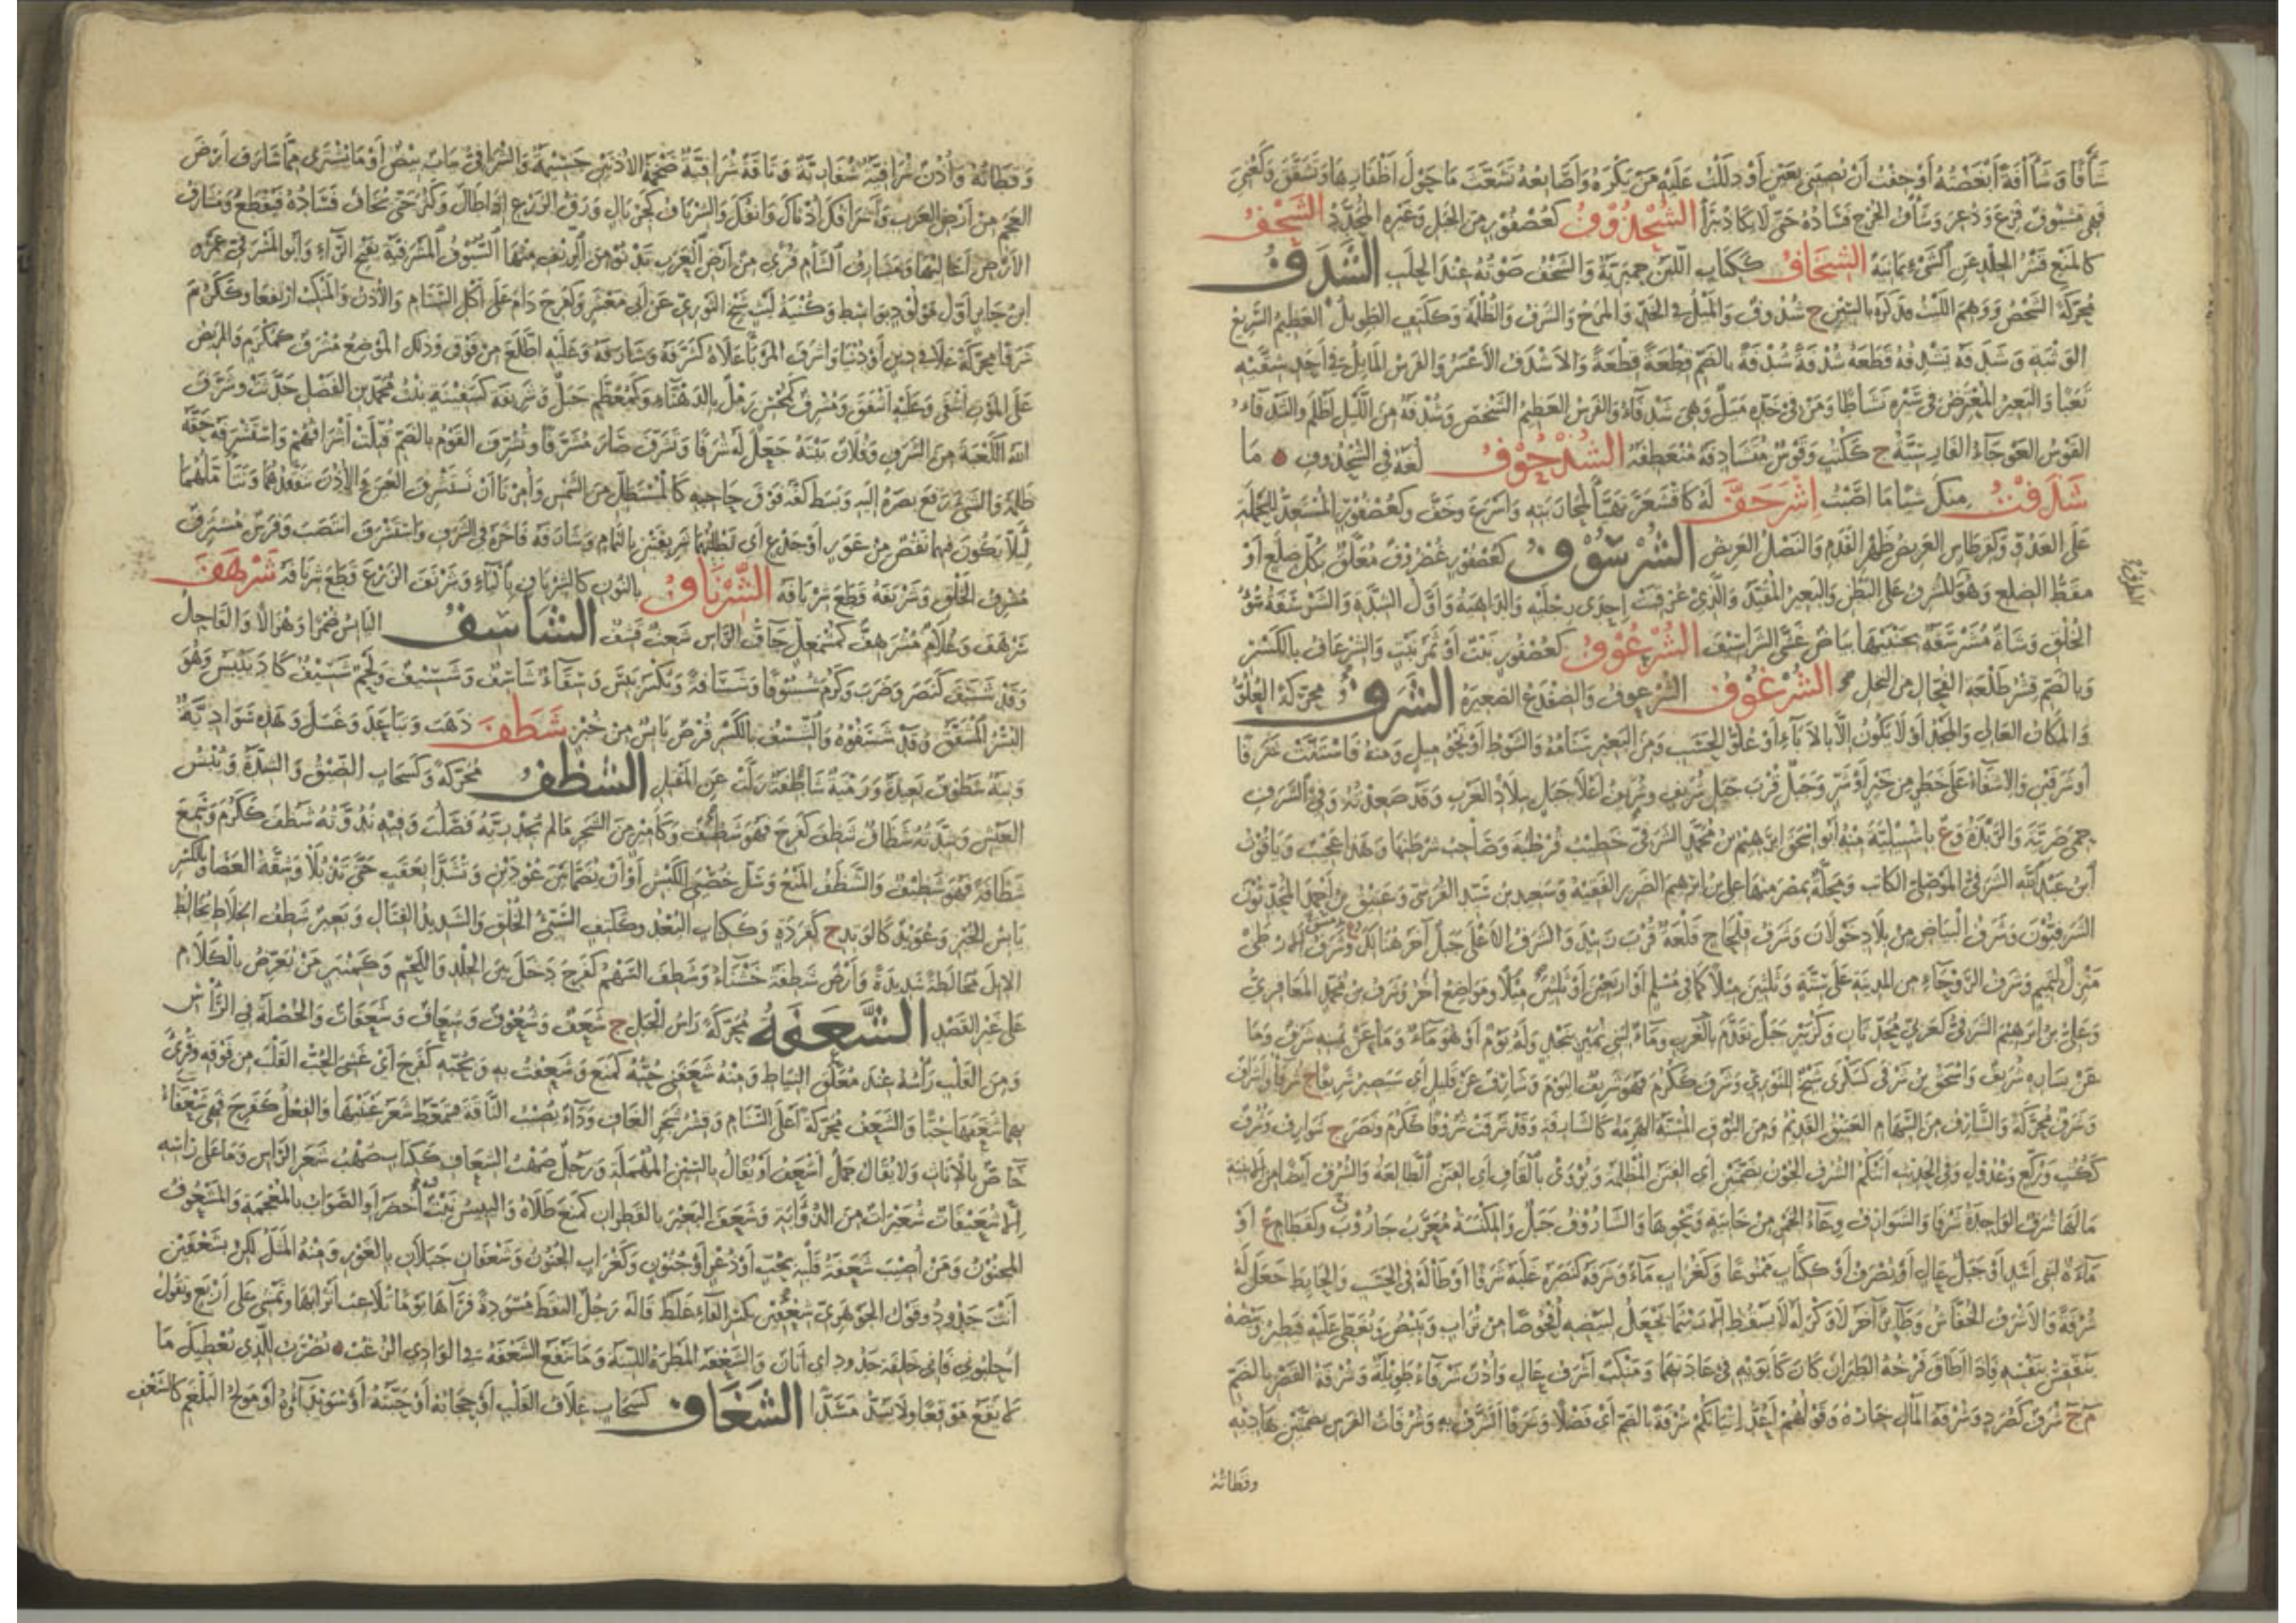 شَأْفًا وَشَآفَةً أبْغَضْتُهُ أَوْ خِفْتُ أَنْ يُصِيبَنِي بِعَيْنٍ أَوْ دَلَلْتُ عَلَيْهِ مَنْ يَكْرَهُ وَأَصَابِعُهُ تَشَعَّثَ مَا حَوْلَ أَظْفَارِهَا وَتَشَقَّقَ وَكَعُنِيَ
فَهِيَ مَشْؤُوفٌ فُزِعَ وَذُعِرَ وَشَأَفُ الجُرْحِ فَسَادُهُ حَتَّى لَا يَكَادُ يَبْرَأُ الشُّحْذُوفُ كَعُصْفُورٍ مِنَ الجَبَلِ وَغَيْرِهِ المُحَدَّدُ الشَّحْفُ
كَالمَنْعِ قَشْرُ الجِلْدِ عَنِ الشَّيْءِ يَمَانِيَةٌ الشِّخَافُ كَكِتَابٍ اللَّبَنُ حِمْيَرِيَّةٌ وَالشَّخْفُ صَوْتُهُ عِنْدَ الحَلْبِ الشَّدَفُ
مُحَرَّكَةً الشَّخْصُ وَوَهِمَ اللَّيْثُ فَذَكَرَهُ بِالسِّينِ ج شُدُوفٌ وَالمَيْلُ فِي الخَدِّ وَالمَرَحُ وَالشَّرَفُ وَالظُّلْمَةُ وَكَكَتِفٍ الطَّوِيلُ العَظِيمُ السَّرِيعُ
الوَثْبَةِ وَشَدَفَهُ يَشْدِفُهُ قَطَعَهُ شُدْفَةً شُدْفَةً بِالضَّمِّ قِطْعَةً قِطْعَةً وَالأَشْدَفُ الأَعْسَرُ وَالفَرَسُ المَائِلُ فِي أَحَدِ شِقَّيْهِ
بَغْيًا وَالبَعِيرُ المُعْتَرِضُ فِي سَيْرِهِ نَشَاطًا وَمَنْ فِي خَدِّهِ مَيْلٌ وَهِيَ شَدْفَاءُ وَالفَرَسُ العَظِيمُ الشَّخْصِ وَشُدْفَةٌ مِنَ اللَّيْلِ وَالشَّدْفَاءُ
القَوْسُ العَوْجَاءُ الفَارِسِيَّةُ ج كَكُتُبٍ وَقَوْسٌ مُنْعَطِفَةٌ الشُّذْحُوفُ لُغَةٌ فِي الشُّحْذُوفِ مَا
شَذَفْتُ مِنْكَ شَيْئًا مَا أَصَبْتُ اشْرَحَفَّ لَهُ كَاقْشَعَرَّ تَهَيَّأَ لِمُحَارَبَتِهِ وَأَسْرَعَ وَخَفَّ وَكَعُصْفُورٍ المُسْتَعِدُّ لِلْحَمْلَةِ
عَلَى العَدُوِّ وَكَقِرْطَاسٍ العَرِيضُ ظَهْرِ القَدَمِ وَالنَّصْلُ العَرِيضُ الشُّرْسُوفُ كَعُصْفُورٍ غُضْرُوفٌ مُعَلَّقٌ بِكُلِّ ضِلَعٍ أَوْ
مَقَطُّ الضِّلَعِ وَهُوَ المُشْرِفُ عَلَى البَطْنِ وَالبَعِيرُ المُقَيَّدُ وَالَّذِي عُرْقِبَتْ إِحْدَى رِجْلَيْهِ وَالدَّاهِيَةُ وَأَوَّلُ الشِّدَّةِ وَالشَّرْسَفَةُ سُوءُ
الخُلُقِ وَشَاةٌ مُشَرْسَفَةٌ بِجَنْبَيْهَا بَيَاضٌ غَشَّى الشَّرَاسِيفَ الشُّرْعُوفُ كَعُصْفُورٍ نَبْتٌ أَوْ ثَمَرُ نَبْتٍ وَالشِّرْعَافُ بِالكَسْرِ
وَبِالضَّمِّ قِشْرُ طَلْعَةِ الفُحَّالِ مِنَ النَّخْلِ الشُّرْغُوفُ الشُّرْعُوفُ وَالضِّفْدَعُ الصَّغِيرَةُ الشَّرَفُ مُحَرَّكَةً العُلُوُّ
وَالمَكَانُ العَالِي وَالمَجْدُ أَوْ لَا يَكُونُ إِلَّا بِالآبَاءِ أَوْ عُلُوُّ الحَسَبِ وَمِنَ البَعِيرِ سَنَامُهُ وَالشَّوْطُ أَوْ نَحْوُ مِيلٍ وَمِنْهُ فَاسْتَنَّتْ شَرَفًا
أَوْ شَرَفَيْنِ وَالإِشْفَاءُ عَلَى خَطَرٍ مِنْ خَيْرٍ أَوْ شَرٍّ وَجَبَلٌ قُرْبَ جَبَلِ شُرَيْفٍ وَشُرَيْفٌ أَعْلَى جَبَلٍ بِبِلَادِ العَرَبِ وَقَدْ صَعِدْتُهُ وَفِي الشَّرَفِ
حِمَى ضَرِيَّةَ وَالرَّبَذَةُ وَع بِإِشْبِيلِيَّةَ مِنْهُ أَبُو إِسْحَقَ إِبْرَهِيمُ بْنُ مُحَمَّدٍ الشَّرَفِيُّ خَطِيبُ قُرْطُبَةَ وَصَاحِبُ شُرْطَتِهَا وَهَذَا عَجِيبٌ وَيَاقُوتُ
ابْنُ عَبْدِ اللهِ الشَّرَفِيُّ المَوْصِلِيُّ الكَاتِبُ وَمَحَلَّةٌ بِمِصْرَ مِنْهَا عَلِيُّ بْنُ إِبْرَهِيمَ الضَّرِيرُ الفَقِيهُ وَسَعِيدُ بْنُ سَيِّدٍ القُرَشِيُّ وَعَتِيقُ بْنُ أَحْمَدَ المُحَدِّثُونَ
الشَّرَفِيُّونَ وَشَرَفُ البَيَاضِ مِنْ بِلَادِ خَوْلَانَ وَشَرَفُ قِلْحَاحٍ قَلْعَةٌ قُرْبَ زَبِيدَ وَالشَّرَفُ الأَعْلَى جَبَلٌ آخَرُ هُنَالِكَ وَشَرَفُ الأَرْطَى
مَنْزِلٌ لِتَمِيمٍ وَشَرَفُ الرَّوْحَاءِ مِنَ المَدِينَةِ عَلَى سِتَّةٍ وَثَلَثِينَ مِيلًا كَمَا فِي مُسْلِمٍ أَوْ أَرْبَعِينَ أَوْ ثَلَثِينَ وَمَوَاضِعُ أُخَرُ وَشَرَفُ بْنُ مُحَمَّدٍ المَعَافِرِيُّ
وَعَلِيُّ بْنُ إِبْرَهِيمَ الشَّرَفِيُّ كَعَرَبِيٍّ مُحَدِّثَانِ وَكَزُبَيْرٍ جَبَلٌ تَقَدَّمَ وَمَاءٌ لِبَنِي نُمَيْرٍ بِنَجْدٍ وَلَهُ يَوْمٌ أَوْ هُوَ مَاءٌ وَمَا عَنْ يَمِينِهِ شَرَفٌ وَمَا
عَنْ يَسَارِهِ شُرَيْفٌ وَإِسْحَقُ بْنُ شَرْفَى كَسَكْرَى شَيْخٌ لِلثَّوْرِيِّ وَشَرُفَ كَكَرُمَ فَهُوَ شَرِيفٌ اليَوْمَ وَشَارِفٌ عَنْ قَلِيلٍ أَيْ سَيَصِيرُ شَرِيفًا ج شُرَفَاءُ وَأَشْرَافٌ
وَشَرَفٌ مُحَرَّكَةً وَالشَّارِفُ مِنَ السِّهَامِ العَتِيقُ القَدِيمُ وَمِنَ النُّوقِ المُسِنَّةُ الهَرِمَةُ كَالشَّارِفَةِ وَقَدْ شَرَفَتْ شُرُوفًا كَكَرُمَ وَنَصَرَ ج شَوَارِفُ وَشُرَّفٌ
كَكُتُبٍ وَرُكَّعٍ وَعُذُولٍ وَفِي الحَدِيثِ أَتَتْكُمُ الشُّرُفُ الجُونُ بِضَمَّتَيْنِ أَيِ الفِتَنُ المُظْلِمَةُ وَيُرْوَى بِالقَافِ أَيِ الفِتَنُ الطَّالِعَةُ وَالشُّرُفُ أَيْضًا مِنَ الأَبْنِيَةِ
مَا لَهَا شُرَفٌ الوَاحِدَةُ شَرْفَاءُ وَالشَّوَارِفُ وِعَاءُ الخَمْرِ مِنْ خَابِيَةٍ وَنَحْوِهَا وَالشَّارُوفُ جَبَلٌ وَالمِكْنَسَةُ مُعَرَّبُ جَارُوبَ وَكَقَطَامِ ع أَوْ
مَاءَةٌ لِبَنِي أَسَدٍ أَوْ جَبَلٌ عَالٍ أَوْ يُصْرَفُ أَوْ كَكِتَابٍ مَمْنُوعًا وَكَغُرَابٍ مَاءٌ وَشَرَفَهُ كَنَصَرَهُ غَلَبَهُ شَرَفًا أَوْ طَالَهُ فِي الحَسَبِ وَالحَائِطَ جَعَلَ لَهُ
شُرْفَةً وَالأَشْرَفُ الخُفَّاشُ وَطَائِرٌ آخَرُ لَا وَكْرَ لَهُ لَا يَسْقُطُ إِلَّا رَيْثَمَا يَجْعَلُ لِبَيْضِهِ أُفْحُوصًا مِنْ تُرَابٍ وَيَبِيضُ وَيُغَطِّي عَلَيْهِ فَيَطِيرُ وَبَيْضُهُ
يَتَفَقَّسُ بِنَفْسِهِ فَإِذَا أَطَاقَ فَرْخُهُ الطَّيَرَانَ كَانَ كَأَبَوَيْهِ فِي عَادَتِهِمَا وَمَنْكِبٌ أَشْرَفُ عَالٍ وَأُذُنٌ شَرْفَاءُ طَوِيلَةٌ وَشُرْفَةُ القَصْرِ بِالضَّمِّ
م ج شُرَفٌ كَصُرَدٍ وَشُرْفَةُ المَالِ خِيَارُهُ وَقَوْلُهُمْ أَعُدُّ إِتْيَانَكُمْ شُرْفَةً بِالضَّمِّ أَيْ فَضْلًا وَشَرَفًا أَتَشَرَّفُ بِهِ وَشُرُفَاتُ الفَرَسِ بِضَمَّتَيْنِ هَادِيهِ
وقطاته
وَقَطَاتُهُ وَأُذُنٌ شُرَافِيَّةٌ شُفَارِيَّةٌ وَنَاقَةٌ شُرَافِيَّةٌ ضَخْمَةُ الأُذُنَيْنِ جَسِيمَةٌ وَالشُّرَافِيُّ ثِيَابٌ بِيضٌ أَوْ مَا يُشْتَرَى مِمَّا شَارَفَ أَرْضَ
العَجَمِ مِنْ أَرْضِ العَرَبِ وَالشِّرْيَافُ كَجِرْيَالٍ وَرَقُ الزَّرْعِ إِذَا طَالَ وَكَثُرَ حَتَّى يُخَافَ فَسَادُهُ فَيُقْطَعُ وَمَشَارِفُ
الأَرْضِ أَعَالِيهَا وَمَشَارِفُ الشَّأْمِ قُرًى مِنْ أَرْضِ العَرَبِ تَدْنُو مِنَ الرِّيفِ مِنْهَا السُّيُوفُ المَشْرَفِيَّةُ بِفَتْحِ الرَّاءِ وَأَبُو المَشْرَفِيِّ عَمْرُو
ابْنُ جَابِرٍ أَوَّلُ مَوْلُودٍ بِوَاسِطَ وَكُنْيَةُ لَيْثٍ شَيْخِ الثَّوْرِيِّ عَنْ أَبِي مَعْشَرٍ وَكَفَرِحَ دَامَ عَلَى أَكْلِ السَّنَامِ وَالأُذُنُ وَالمَنْكِبُ ارْتَفَعَا وَكَكَرُمَ
شَرَفًا مُحَرَّكَةً عَلَا فِي دِينٍ أَوْ دُنْيَا وَأَشْرَفَ المَرْبَأَ عَلَاهُ كَتَشَرَّفَهُ وَشَارَفَهُ وَعَلَيْهِ اطَّلَعَ مِنْ فَوْقُ وَذَلِكَ المَوْضِعُ مُشْرَفٌ كَمُكْرَمٍ وَالمَرِيضُ
عَلَى المَوْتِ أَشْفَى وَعَلَيْهِ أَشْفَقَ وَمُشْرِفٌ كَمُحْسِنٍ رَمْلٌ بِالدَّهْنَاءِ وَكَمُعَظَّمٍ جَبَلٌ وَشَرِيفَةُ كَسَفِينَةٍ بِنْتُ مُحَمَّدِ بْنِ الفَضْلِ حَدَّثَتْ وَشَرَّفَ
اللهُ الكَعْبَةَ مِنَ الشَّرَفِ وَفُلَانٌ بَيْتَهُ جَعَلَ لَهُ شُرَفًا وَتَشَرَّفَ صَارَ مُشَرَّفًا وَتُشُرِّفَ القَوْمُ بِالضَّمِّ قُتِلَتْ أَشْرَافُهُمْ وَاسْتَشْرَفَهُ حَقَّهُ
ظَلَمَهُ وَالشَّيْءَ رَفَعَ بَصَرَهُ إِلَيْهِ وَبَسَطَ كَفَّهُ فَوْقَ حَاجِبِهِ كَالمُسْتَظِلِّ مِنَ الشَّمْسِ وَأُمِرْنَا أَنْ نَسْتَشْرِفَ العَيْنَ وَالأُذُنَ نَتَفَقَّدُهُمَا وَنَتَأَمَّلُهُمَا
لِئَلَّا يَكُونَ فِيهِمَا نَقْصٌ مِنْ عَوَرٍ أَوْ جَدْعٍ أَيْ نَطْلُبُهُمَا شَرِيفَيْنِ بِالتَّمَامِ وَشَارَفَهُ فَاخَرَهُ فِي الشَّرَفِ وَاسْتَشْرَفَ انْتَصَبَ وَفَرَسٌ مُشْتَرِفٌ
مُشْرِفُ الخَلْقِ وَشَرْيَفَهُ قَطَعَ شِرْيَافَهُ الشِّرْنَافُ بِالنُّونِ كَالشِّرْيَافِ بِاليَاءِ وَشَرْنَفَ الزَّرْعَ قَطَعَ شِرْنَافَهُ شَرْهَفَ
شَرْهَفَ وَغُلَامٌ مُشْرَهِفٌّ كَمُشْمَعِلٍّ جَافُّ الرَّأْسِ شَعِثٌ قَشِفٌ الشَّاسِفُ اليَابِسُ ضُمْرًا وَهُزَالًا وَالقَاحِلُ
وَقَدْ شَسَفَ كَنَصَرَ وَضَرَبَ وَكَرُمَ شُسُوفًا وَشَسَافَةً وَيُكْسَرُ يَبِسَ وَسِقَاءٌ شَاسِفٌ وَشَسِيفٌ وَلَحْمٌ شَسِيفٌ كَادَ يَيْبَسُ وَهُوَ
البُسْرُ المُشَقَّقُ وَقَدْ شَسَّفُوهُ وَالشِّسْفُ بِالكَسْرِ قُرْصٌ يَابِسٌ مِنْ خُبْزٍ شَطَفَ ذَهَبَ وَتَبَاعَدَ وَغَسَلَ وَهَذِهِ سَوَادِيَّةٌ
وَنِيَّةٌ شَطُوفٌ بَعِيدَةٌ وَرَمْيَةٌ شَاطِفَةٌ زَلَّتْ عَنِ المَقْتَلِ الشَّظَفُ مُحَرَّكَةً وَكَسَحَابٍ الضِّيقُ وَالشِّدَّةُ وَيُبْسُ
العَيْشِ وَشِدَّتُهُ شَظِفَ كَفَرِحَ فَهُوَ شَظِفٌ وَكَأَمِيرٍ مِنَ الشَّجَرِ مَا لَمْ يَجِدْ رِيَّهُ فَصَلُبَ وَفِيهِ نُدُوَّتُهُ شَظُفَ كَكَرُمَ وَسَمِعَ
شَظَافَةً فَهُوَ شَظِيفٌ وَالشَّظْفُ المَنْعُ وَسَلُّ خُصْيَيِ الكَبْشِ أَوْ أَنْ يُضَمَّا بَيْنَ عُودَيْنِ وَتُشَدَّا بِعَقَبٍ حَتَّى تَذْبُلَا وَشِقَّةُ العَصَا وَبِالكَسْرِ
يَابِسُ الخُبْزِ وَعُوَيْدٌ كَالوَتَدِ ج كَقِرَدَةٍ وَكَكِتَابٍ البُعْدُ وَكَكَتِفٍ السَّيِّئُ الخُلُقِ وَالشَّدِيدُ القِتَالِ وَبَعِيرٌ شَظِفُ الخِلَاطِ يُخَالِطُ
الإِبِلَ مُخَالَطَةً شَدِيدَةً وَأَرْضٌ شَظِفَةٌ خَشْنَاءُ وَشَظِفَ السَّهْمُ كَفَرِحَ دَخَلَ بَيْنَ الجِلْدِ وَاللَّحْمِ وَكَمِنْبَرٍ مَنْ يُعَرِّضُ بِالكَلَامِ
عَلَى غَيْرِ القَصْدِ الشَّعَفَةُ مُحَرَّكَةً رَأْسُ الجَبَلِ ج شَعَفٌ وَشُعُوفٌ وَشِعَافٌ وَشَعَفَاتٌ وَالخُصْلَةُ فِي الرَّأْسِ
وَمِنَ القَلْبِ رَأْسُهُ عِنْدَ مُعَلَّقِ النِّيَاطِ وَمِنْهُ شَعَفَنِي حُبُّهُ كَمَنَعَ وَشَعِفْتُ بِهِ وَبِحُبِّهِ كَفَرِحَ أَيْ غَشِيَ الحُبُّ القَلْبَ مِنْ فَوْقِهِ وَقُرِئَ
بِهِمَا شَعَفَهَا حُبًّا وَالشَّعَفُ مُحَرَّكَةً أَعْلَى السَّنَامِ وَقِشْرُ شَجَرِ الغَافِ وَدَاءٌ يُصِيبُ النَّاقَةَ فَيَتَمَعَّطُ شَعَرُ عَيْنَيْهَا وَالفِعْلُ كَفَرِحَ فَهِيَ شَعْفَاءُ
خَاصٌّ بِالإِنَاثِ وَلَا يُقَالُ جَمَلٌ أَشْعَفُ أَوْ يُقَالُ بِالسِّينِ المُهْمَلَةِ وَرَجُلٌ صَهْبُ الشِّعَافِ كَكِتَابٍ صَهْبُ شَعَرِ الرَّأْسِ وَمَا عَلَى رَأْسِهِ
إِلَّا شُعَيْفَاتٌ شُعَيْرَاتٌ مِنَ الذُّؤَابَةِ وَشَعَفَ البَعِيرَ بِالقَطِرَانِ كَمَنَعَ طَلَاهُ وَاليَبِيسُ نَبَتَ أَخْضَرُ أَوِ الصَّوَابُ بِالمُعْجَمَةِ وَالمَشْعُوفُ
المَجْنُونُ وَمَنْ أُصِيبَ شَعَفَةُ قَلْبِهِ بِحُبٍّ أَوْ ذُعْرٍ أَوْ جُنُونٍ وَكَغُرَابٍ الجُنُونُ وَشَعْفَانِ جَبَلَانِ بِالغَوْرِ وَمِنْهُ المَثَلُ لَكِنْ بِشَعْفَيْنِ
أَنْتِ جَدُودُ وَقَوْلُ الجَوْهَرِيِّ شَعْفَيْنِ بِكَسْرِ الفَاءِ غَلَطٌ قَالَهُ رَجُلٌ التَقَطَ مَنْبُوذَةً فَرَآهَا يَوْمًا تُلَاعِبُ أَتْرَابَهَا وَتَمْشِي عَلَى أَرْبَعٍ وَتَقُولُ
احْلِبُونِي فَإِنِّي خَلِفَةٌ جَدُودٌ أَيْ أَتَانٌ وَالشَّعْفَةُ المَطْرَةُ اللَّيِّنَةُ وَمَا تَنْفَعُ الشَّعْفَةُ فِي الوَادِي الرُّغُبِ يُضْرَبُ لِلَّذِي يُعْطِيكَ مَا
لَا يَقَعُ مَوْقِعًا وَلَا يَسُدُّ مَسَدًّا الشَّغَافُ كَسَحَابٍ غِلَافُ القَلْبِ أَوْ حِجَابُهُ أَوْ حَبَّتُهُ أَوْ سُوَيْدَاؤُهُ أَوْ مَوْلِجُ البَلْغَمِ كَالشَّغْفِ